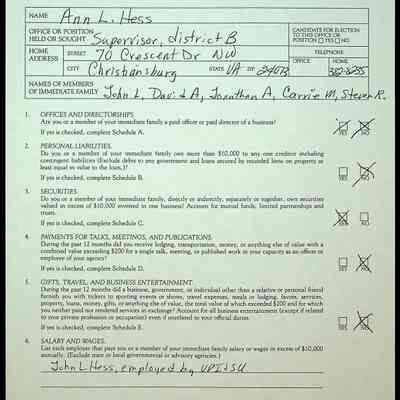 NAME Ann L. Hess
OFFICE OR POSITION HELD OR SOUGHT Supervisor, district B
CANDIDATE FOR ELECTION TO THIS OFFICE OR POSITION YES NO
HOME ADDRESS STREET 70 Crescent Dr NW
TELEPHONE
OFFICE HOME
CITY Christiansburg STATE VA ZIP 24073 382-8255
NAMES OF MEMBERS OF IMMEDIATE FAMILY John L, David A, Jonathan A, Carrie M, Steven R.
1. OFFICES AND DIRECTORSHIPS
Are you or a member of your immediate family a paid officer or paid director of a business?
If yes is checked, complete Schedule A. YES NO
2. PERSONAL LIABILITIES.
Do you or a member of your immediate family owe more than $10,000 to any one creditor including
contingent liabilities (Exclude debts to any government and loans secured by recorded liens on property at
least equal in value to the loan.)?
If yes is checked, complete Schedule B. YES NO
3. SECURITIES.
Do you or a member of your immediate family, directly or indirectly, separately or together, own securities
valued in excess of $10,000 invested in one business? Account for mutual funds, limited partnerships and
trusts.
If yes is checked, complete Schedule C. YES NO
4. PAYMENTS FOR TALKS, MEETINGS, AND PUBLICATIONS.
During the past 12 months did you receive lodging, transportation, money, or anything else of value with a
combined value exceeding $200 for a single talk, meeting, or published work in your capacity as an officer or
employee of your agency?
If yes is checked, complete Schedule D. YES NO
5. GIFTS, TRAVEL, AND BUSINESS ENTERTAINMENT.
During the past 12 months did a business, government, or individual other than a relative or personal friend
furnish you with tickets to sporting events or shows, travel expenses, meals or lodging, favors, services,
property, loans, money, gifts, or anything else of value, the total value of which exceeded $200 and for which
you neither paid nor rendered services in exchange? Account for all business entertainment (except if related
to your private profession or occupation) even if unrelated to your official duties.
If yes is checked, complete Schedule E. YES NO
6. SALARY AND WAGES.
List each employer that pays you or a member of your immediate family salary or wages in excess of $10,000
annually. (Exclude state or local governmental or advisory agencies.)
John L Hess, employed by VPI & SU